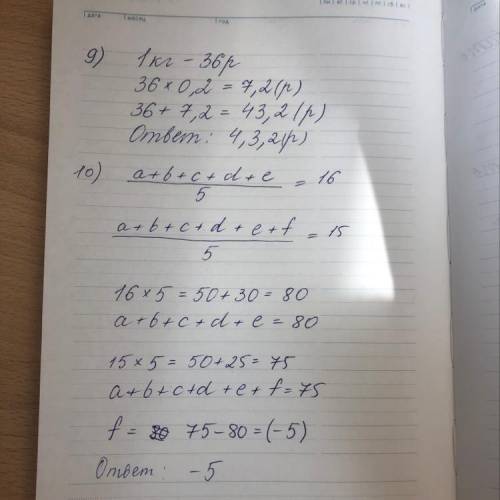 дата месяц год
пн вт ср чт пт сб вс
9) 1кг - 36р
36 × 0,2 = 7,2(р)
36 + 7,2 = 43,2(р)
Ответ: 4,3,2(р)
10) a+b+c+d+e / 5 = 16
a+b+c+d+e+f / 5 = 15
16 × 5 = 50+30 = 80
a+b+c+d+e = 80
15 × 5 = 50+25 = 75
a+b+c+d+e+f = 75
f = 75-80 = (-5)
Ответ: -5